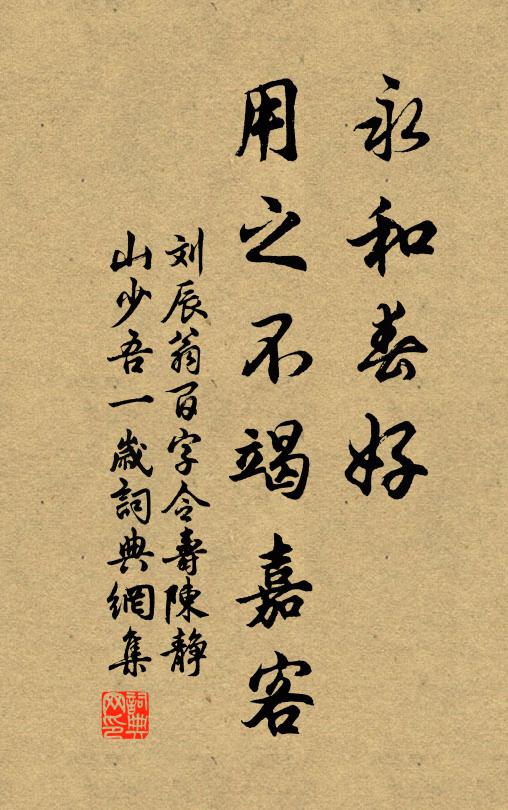 永和春好
用之不竭嘉客
刘辰翁百字令壽陳静
山少吾一歲詞典網集
詞典网印